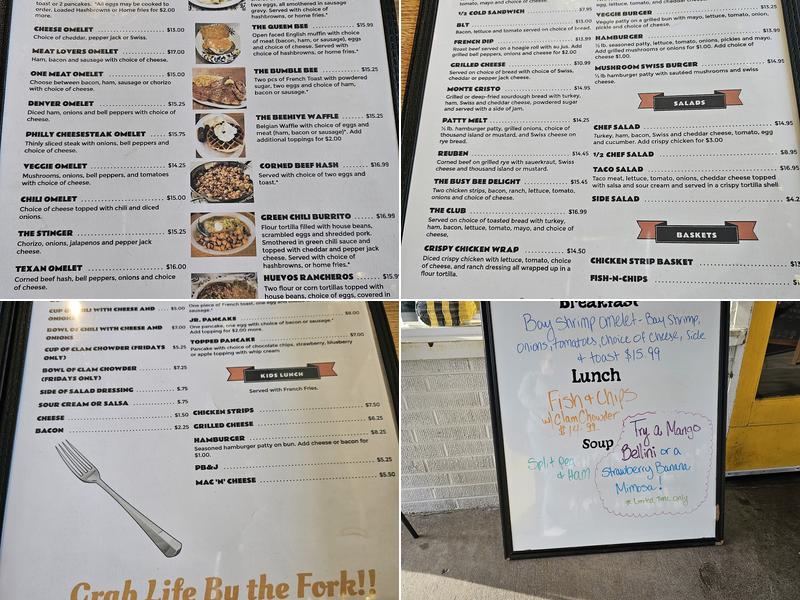 toast or 2 pancakes. *All eggs may be cooked to
order. Loaded Hashbrowns or Home fries for $2.00
more.
CHEESE OMELET $13.00
Choice of cheddar, pepper jack or Swiss.
MEAT LOVERS OMELET $17.00
Ham, bacon and sausage with choice of cheese.
ONE MEAT OMELET $15.00
Choose between bacon, ham, sausage or chorizo
with choice of cheese.
DENVER OMELET $15.25
Diced ham, onions and bell peppers with choice of
cheese.
PHILLY CHEESESTEAK OMELET $15.75
Thinly sliced steak with onions, bell peppers and
choice of cheese.
VEGGIE OMELET $14.25
Mushrooms, onions, bell peppers, and tomatoes
with choice of cheese.
CHILI OMELET $15.00
Choice of cheese topped with chili and diced
onions.
THE STINGER $15.25
Chorizo, onions, jalapenos and pepper jack
cheese.
TEXAN OMELET $16.00
Corned beef hash, bell peppers, onions and choice
of cheese.
two eggs, all smothered in sausage
gravy. Served with choice of
hashbrowns, or home fries.*
THE QUEEN BEE $15.99
Open faced English muffin with choice
of meat (bacon, ham, or sausage), eggs
and choice of cheese. Served with
choice of hashbrowns, or home fries.*
THE BUMBLE BEE $15.25
Two pcs of French Toast with powdered
sugar, two eggs and choice of ham,
bacon or sausage.*
THE BEEHIVE WAFFLE $15.25
Belgian Waffle with choice of eggs and
meat (ham, bacon or sausage)*. Add
additional toppings for $2.00
CORNED BEEF HASH $16.99
Served with choice of two eggs and
toast.*
GREEN CHILI BURRITO $16.99
Flour tortilla filled with house beans,
scrambled eggs and shredded pork.
Smothered in green chili sauce and
topped with cheddar and pepper jack
cheese. Served with choice of
hashbrowns or home fries.*
HUEVOS RANCHEROS $15.9
Two flour or corn tortillas topped with
house beans, choice of eggs, covered in
tomato, mayo and choice of cheese.
1/2 COLD SANDWICH $7.95
BLT $13.99
Bacon, lettuce and tomato served on choice of bread.
FRENCH DIP $13.99
Roast beef served on a hoagie roll with au jus. Add
grilled bell peppers, onions and cheese for $2.00
GRILLED CHEESE $10.99
Served on choice of bread with choice of Swiss,
cheddar or pepper jack cheese.
MONTE CRISTO $14.95
Grilled or deep-fried sourdough bread with turkey,
ham, Swiss and cheddar cheese, powdered sugar
and served with a side of jam.
PATTY MELT $14.25
½ lb. hamburger patty, grilled onions, choice of
thousand island or mustard, and Swiss cheese on
rye bread.
REUBEN $14.45
Corned beef on grilled rye with sauerkraut, Swiss
cheese and thousand island or mustard.
THE BUSY BEE DELIGHT $15.45
Two chicken strips, bacon, ranch, lettuce, tomato,
onions and choice of cheese.
THE CLUB $16.99
Served on choice of toasted bread with turkey,
ham, bacon, lettuce, tomato, mayo, and choice of
cheese.
CRISPY CHICKEN WRAP $14.50
Diced crispy chicken with lettuce, tomato, choice
of cheese, and ranch dressing all wrapped up in a
flour tortilla.
VEGGIE BURGER
Veggie patty on a grilled bun with mayo, lettuce, tomato, onion,
pickle and choice of cheese.
HAMBURGER
½ lb, seasoned patty, lettuce, tomato, onions, pickles and mayo.
Add grilled mushrooms or onions for $1.00. Add choice of
cheese for $1.00.
MUSHROOM SWISS BURGER $14.95
½ lb hamburger patty with sautéed mushrooms and swiss
cheese.
SALADS
CHEF SALAD $14.95
Turkey, ham, bacon, Swiss and cheddar cheese, tomato, egg
and cucumber. Add crispy chicken for $3.00
1/2 CHEF SALAD $8.95
TACO SALAD $16.95
Taco meat, lettuce, tomato, onions, cheddar cheese topped
with salsa and sour cream and served in a crispy tortilla shell.
SIDE SALAD $4.2
BASKETS
CHICKEN STRIP BASKET
FISH-N-CHIPS
CUP OF CHILI WITH CHEESE AND $5.00
ONIONS
BOWL OF CHILI WITH CHEESE AND $7.00
ONIONS
CUP OF CLAM CHOWDER (FRIDAYS $5.25
ONLY)
BOWL OF CLAM CHOWDER $7.25
(FRIDAYS ONLY)
SIDE OF SALAD DRESSING $.75
SOUR CREAM OR SALSA $.75
CHEESE $1.50
BACON $2.25
JR. PANCAKE $8.00
One pancake, one egg with choice of bacon or sausage.*
Add topping for $2.00 more.
TOPPED PANCAKE $7.00
Pancake with choice of chocolate chips, strawberry, blueberry
or apple topping with whip cream
KIDS LUNCH
Served with French Fries.
CHICKEN STRIPS $7.50
GRILLED CHEESE $6.25
HAMBURGER $8.25
Seasoned hamburger patty on bun. Add cheese or bacon for
$1.00.
PB&J $5.25
MAC 'N' CHEESE $5.50
Grab Life By the Fork!!
Breakfast
Bay Shrimp Omelet - Bay Shrimp,
onions, tomatoes, choice of cheese, Side
& toast $15.99
Lunch
Fish & Chips
w/ Clam Chowder
$14.99
Soup
Split Pea
& Ham
Try a Mango
Bellini or a
Strawberry Banana
Mimosa!
* Limited Time Only